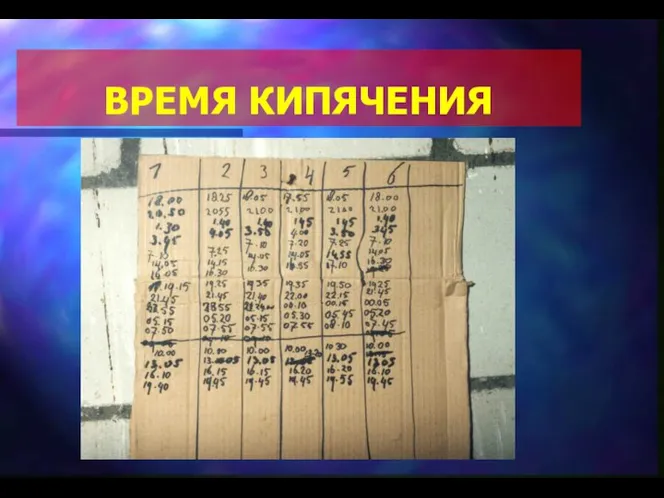 ВРЕМЯ КИПЯЧЕНИЯ
1 2 3 4 5 6
18.00 18.25 18.05 17.55 18.05 18.00
20.50 2055 2100 2100 2100 21.00
1.30 1.40 1.40 145 145 1.40
3.45 4.05 3.50 4.00 3.50 345
7.10 7.25 7.10 7.20 7.25 7.10
14.05 14.15 14.05 14.05 14.55 14.05
16.30 16.30 16.55 17.10 16.30
19.15 19.25 19.35 19.35 19.50 19.25
21.45 21.45 21.40 22.00 22.15 21.45
00.10 00.15 00.05
05.15 05.20 05.15 05.30 05.45 0520
07.50 07.55 07.55 0755 08.10 07.45
10.00 10.10 10.00 10.00 10 30 10.00
13.05 13.05 13.05 13.05 1305
16.10 16.15 16.15 16.20 16.20 16.10
19.40 19.45 19.45 19.45 19.55 19.45